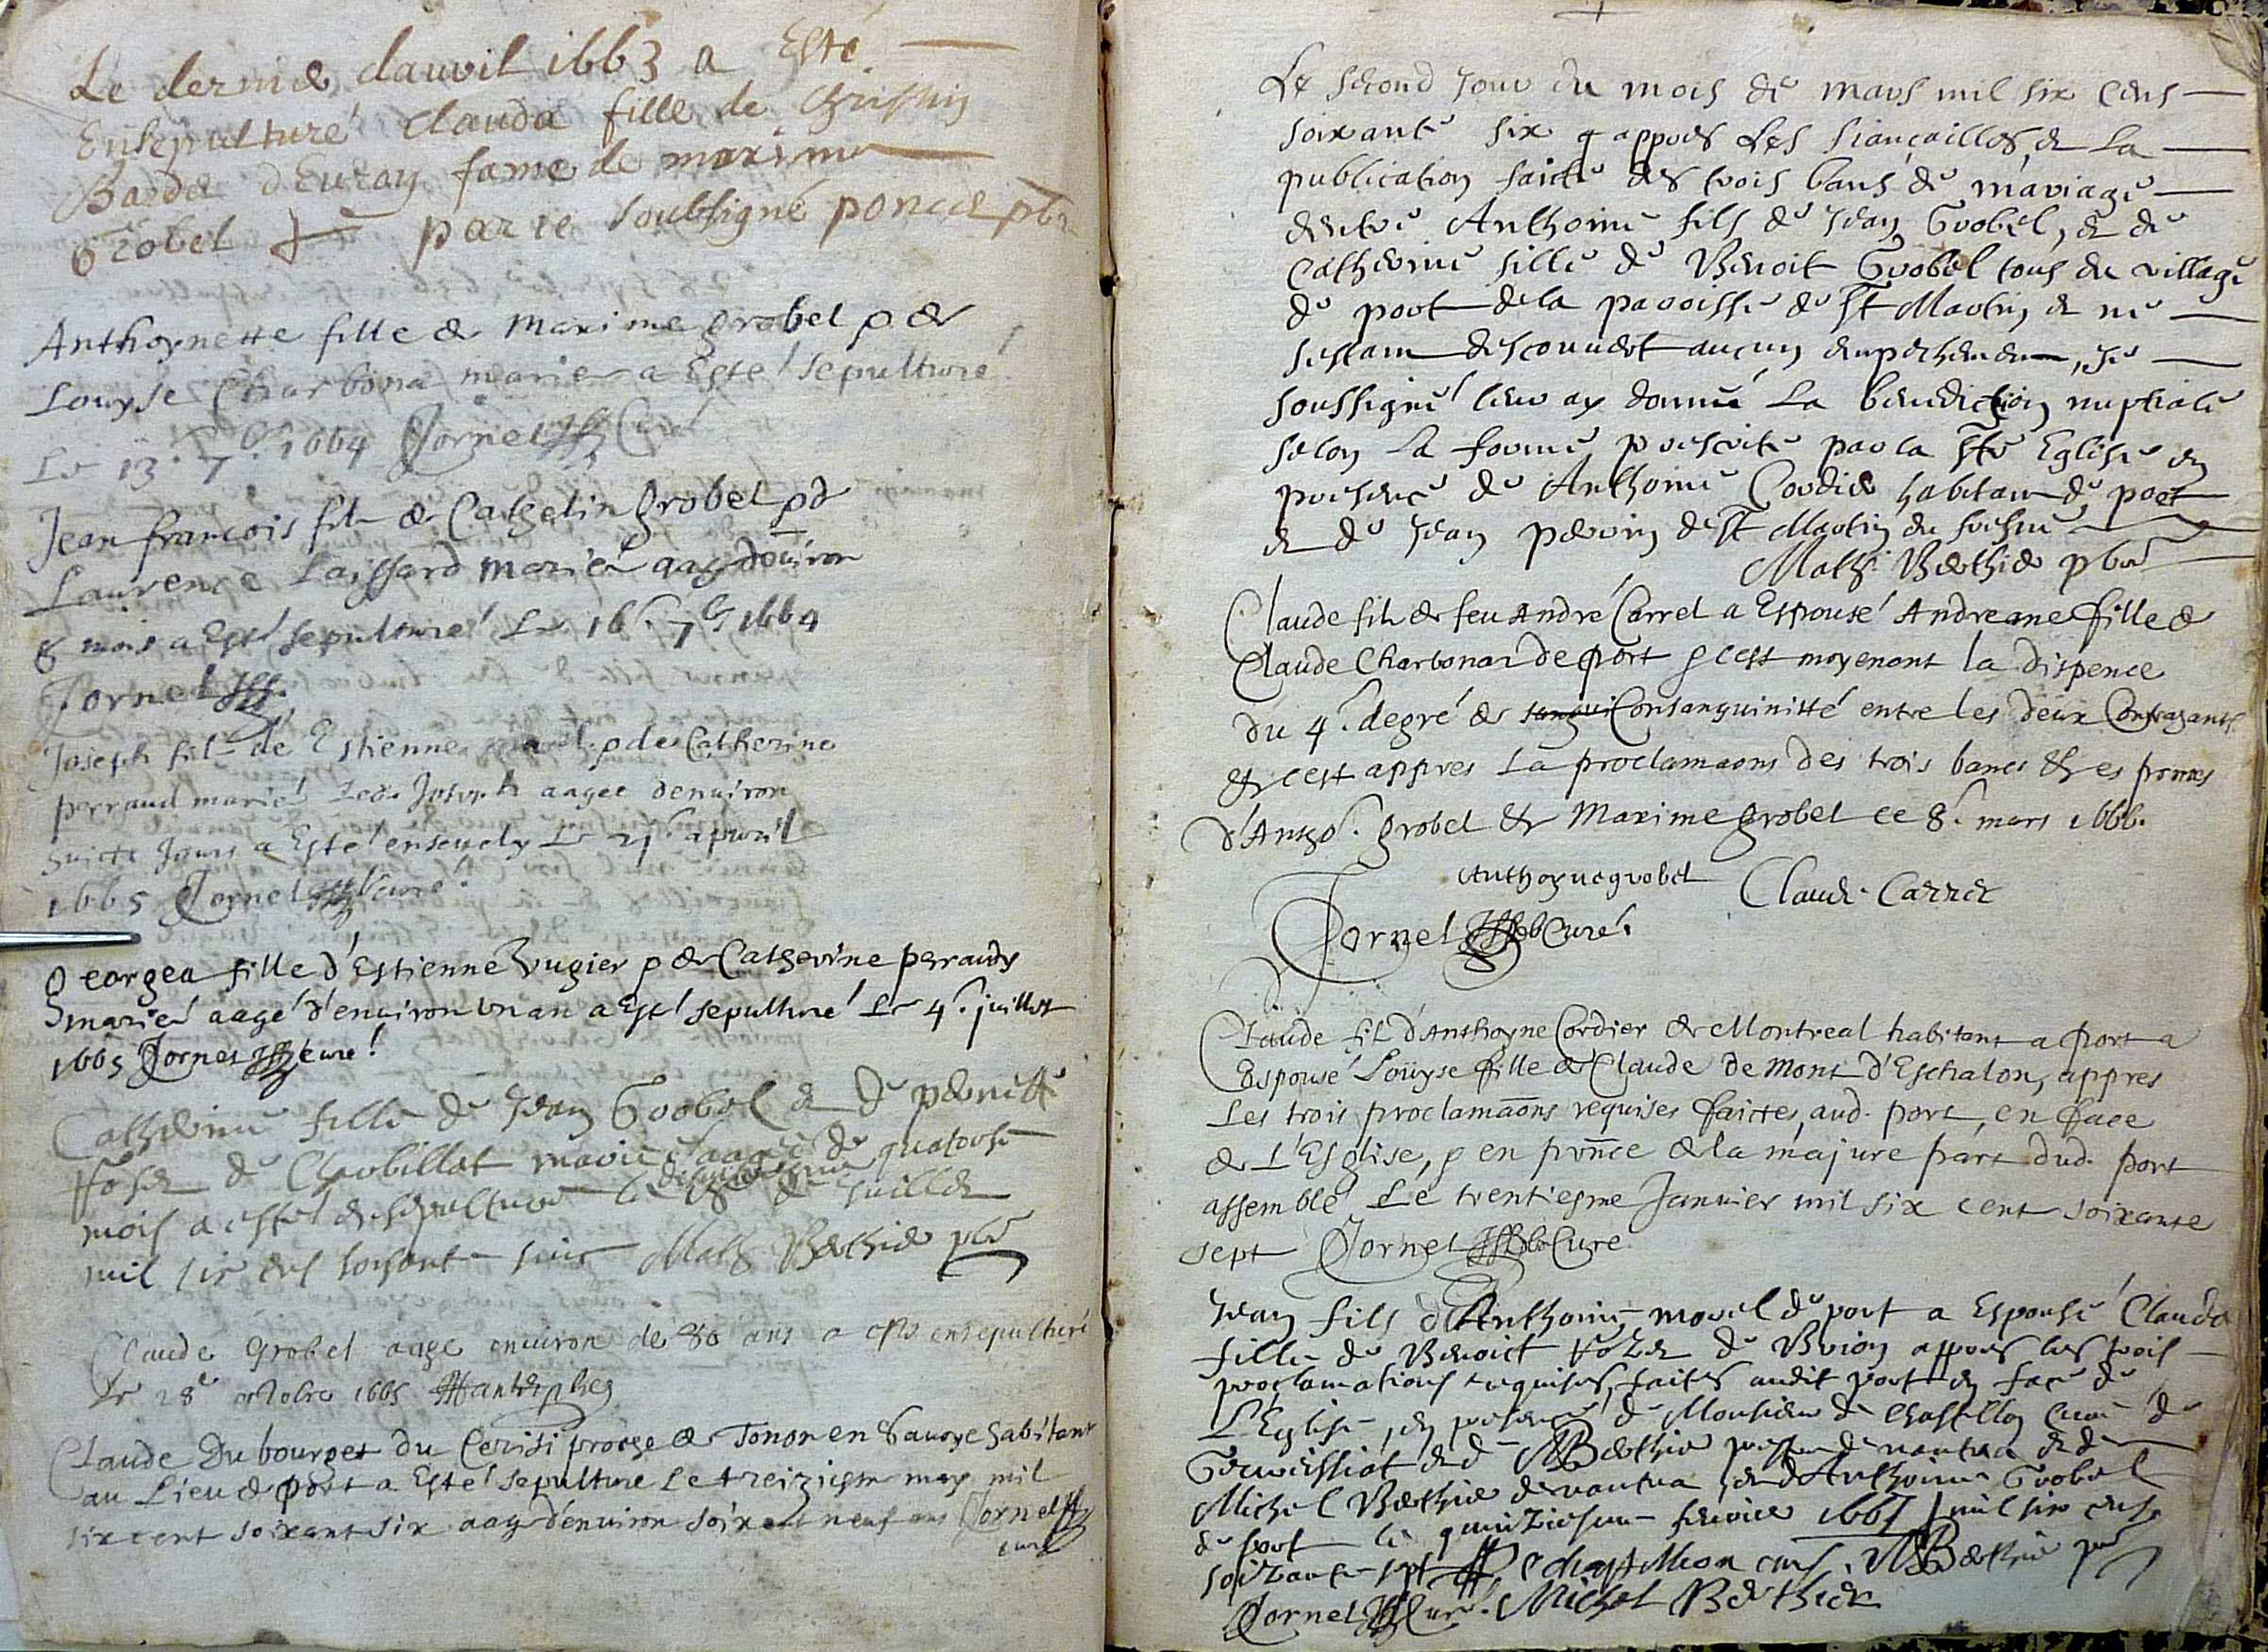 Le dernier dauril 1663 a Esté
Ensepulturé Clauda fille de
Bardet fame de maxime
Grobel par ie soubsigné poncet pbr
Anthoynette fille de Maxime grobel & de
Louyse Charbona mariez a Esté sepulturé
Le 13e 7bre 1664 Jornet Curé
Jean francois fils de Cathelin grobel & de
Laurence Laissard mariez aagé denuiron
8 mois a Esté sepulturé Le 16e 7bre 1664
Jornet
Joseph fils de Estienne & de Catherine
perraud mariés Led. Joseph aagee denuiron
huicte Jours a Esté enseuely Le 21e apuril
1665 Jornet Curé
Georgea fille d'Estienne & de Catherine perraudz
mariés aagé d'enuiron vn an a Esté sepulturé Le 4e juillet
1665 Jornet curé
Catherine fille de Jean Grobel et de pernette
de mariés aagée de quatorse
mois a esté ensepulturée le de Juillet
mil six cens soisante Math. Berthier pbr
Claude Grobel aage enuiron de 80 ans a esté ensepulturé
Le 28e octobre 1665
Claude Dubourget du proche de Tonon en Sauoye habitant
au Lieu de port a Esté sepulture Le treiziesme may mil
six cent soixant six aagé d'enuiron soixant neuf ans Jornet
curé
Le second jour du mois de mars mil six cens
soixante six & appres Les fiançailles et La
publication faicte des trois bans de mariage
dentre Anthoine fils de Jean Grobel, et de
Catherine fille de Benoit Grobel tous du village
de port de la paroisse de St Martin et ne
sestant descouuert aucun empechement, je
soussigné leur ay donné La benediction nuptiale
selon La forme prescrite par la Ste Eglise en
presence de Anthoine Cordier habitant de port
et de Jean perrin de St Martin du fresne
Math. Berthier pbr
Claude fils de feu André Carrel a Espousé Andreane fille de
Claude Charbonar de port & cest moyenant la dispence
du 4e degré de sangui Consanguinitté entre les deux Contrazants
& cest appres La proclamaons des trois bancs & es pnces
d'Antho. grobel & Maxime grobel ce 8e mars 1666.
Anthoyne grobel Claude Carrel
Jornet Curé
Claude fils d'Anthoyne Cordier de Montreal habitant a port a
Espousé Loüyse fille de Claude de Mont d'Eschalon, appres
Les trois proclamaons requises faictes, aud. port, en face
de L'Esglise, & en pnce de la majure part dud. port
assemblé Le trentiesme Januier mil six cent soixante
sept Jornet Curé
Jean fils d'Anthoine morel de port a Espousé Clauda
fille de Benoict de Brion appres les trois
proclamations requises, faites audit port en face de
L'Eglise, en presence de Monsieur de Chastillon Curé de
Geuressiat et de MBerthier prestre de nantua et de
Michel Berthier de nantua, et d'Anthoine Grobel
de port le quinziesme feurier 1667 mil six cens
soizante sept curé. MBerthier pbr
Jornet Curé. Michel Berthier